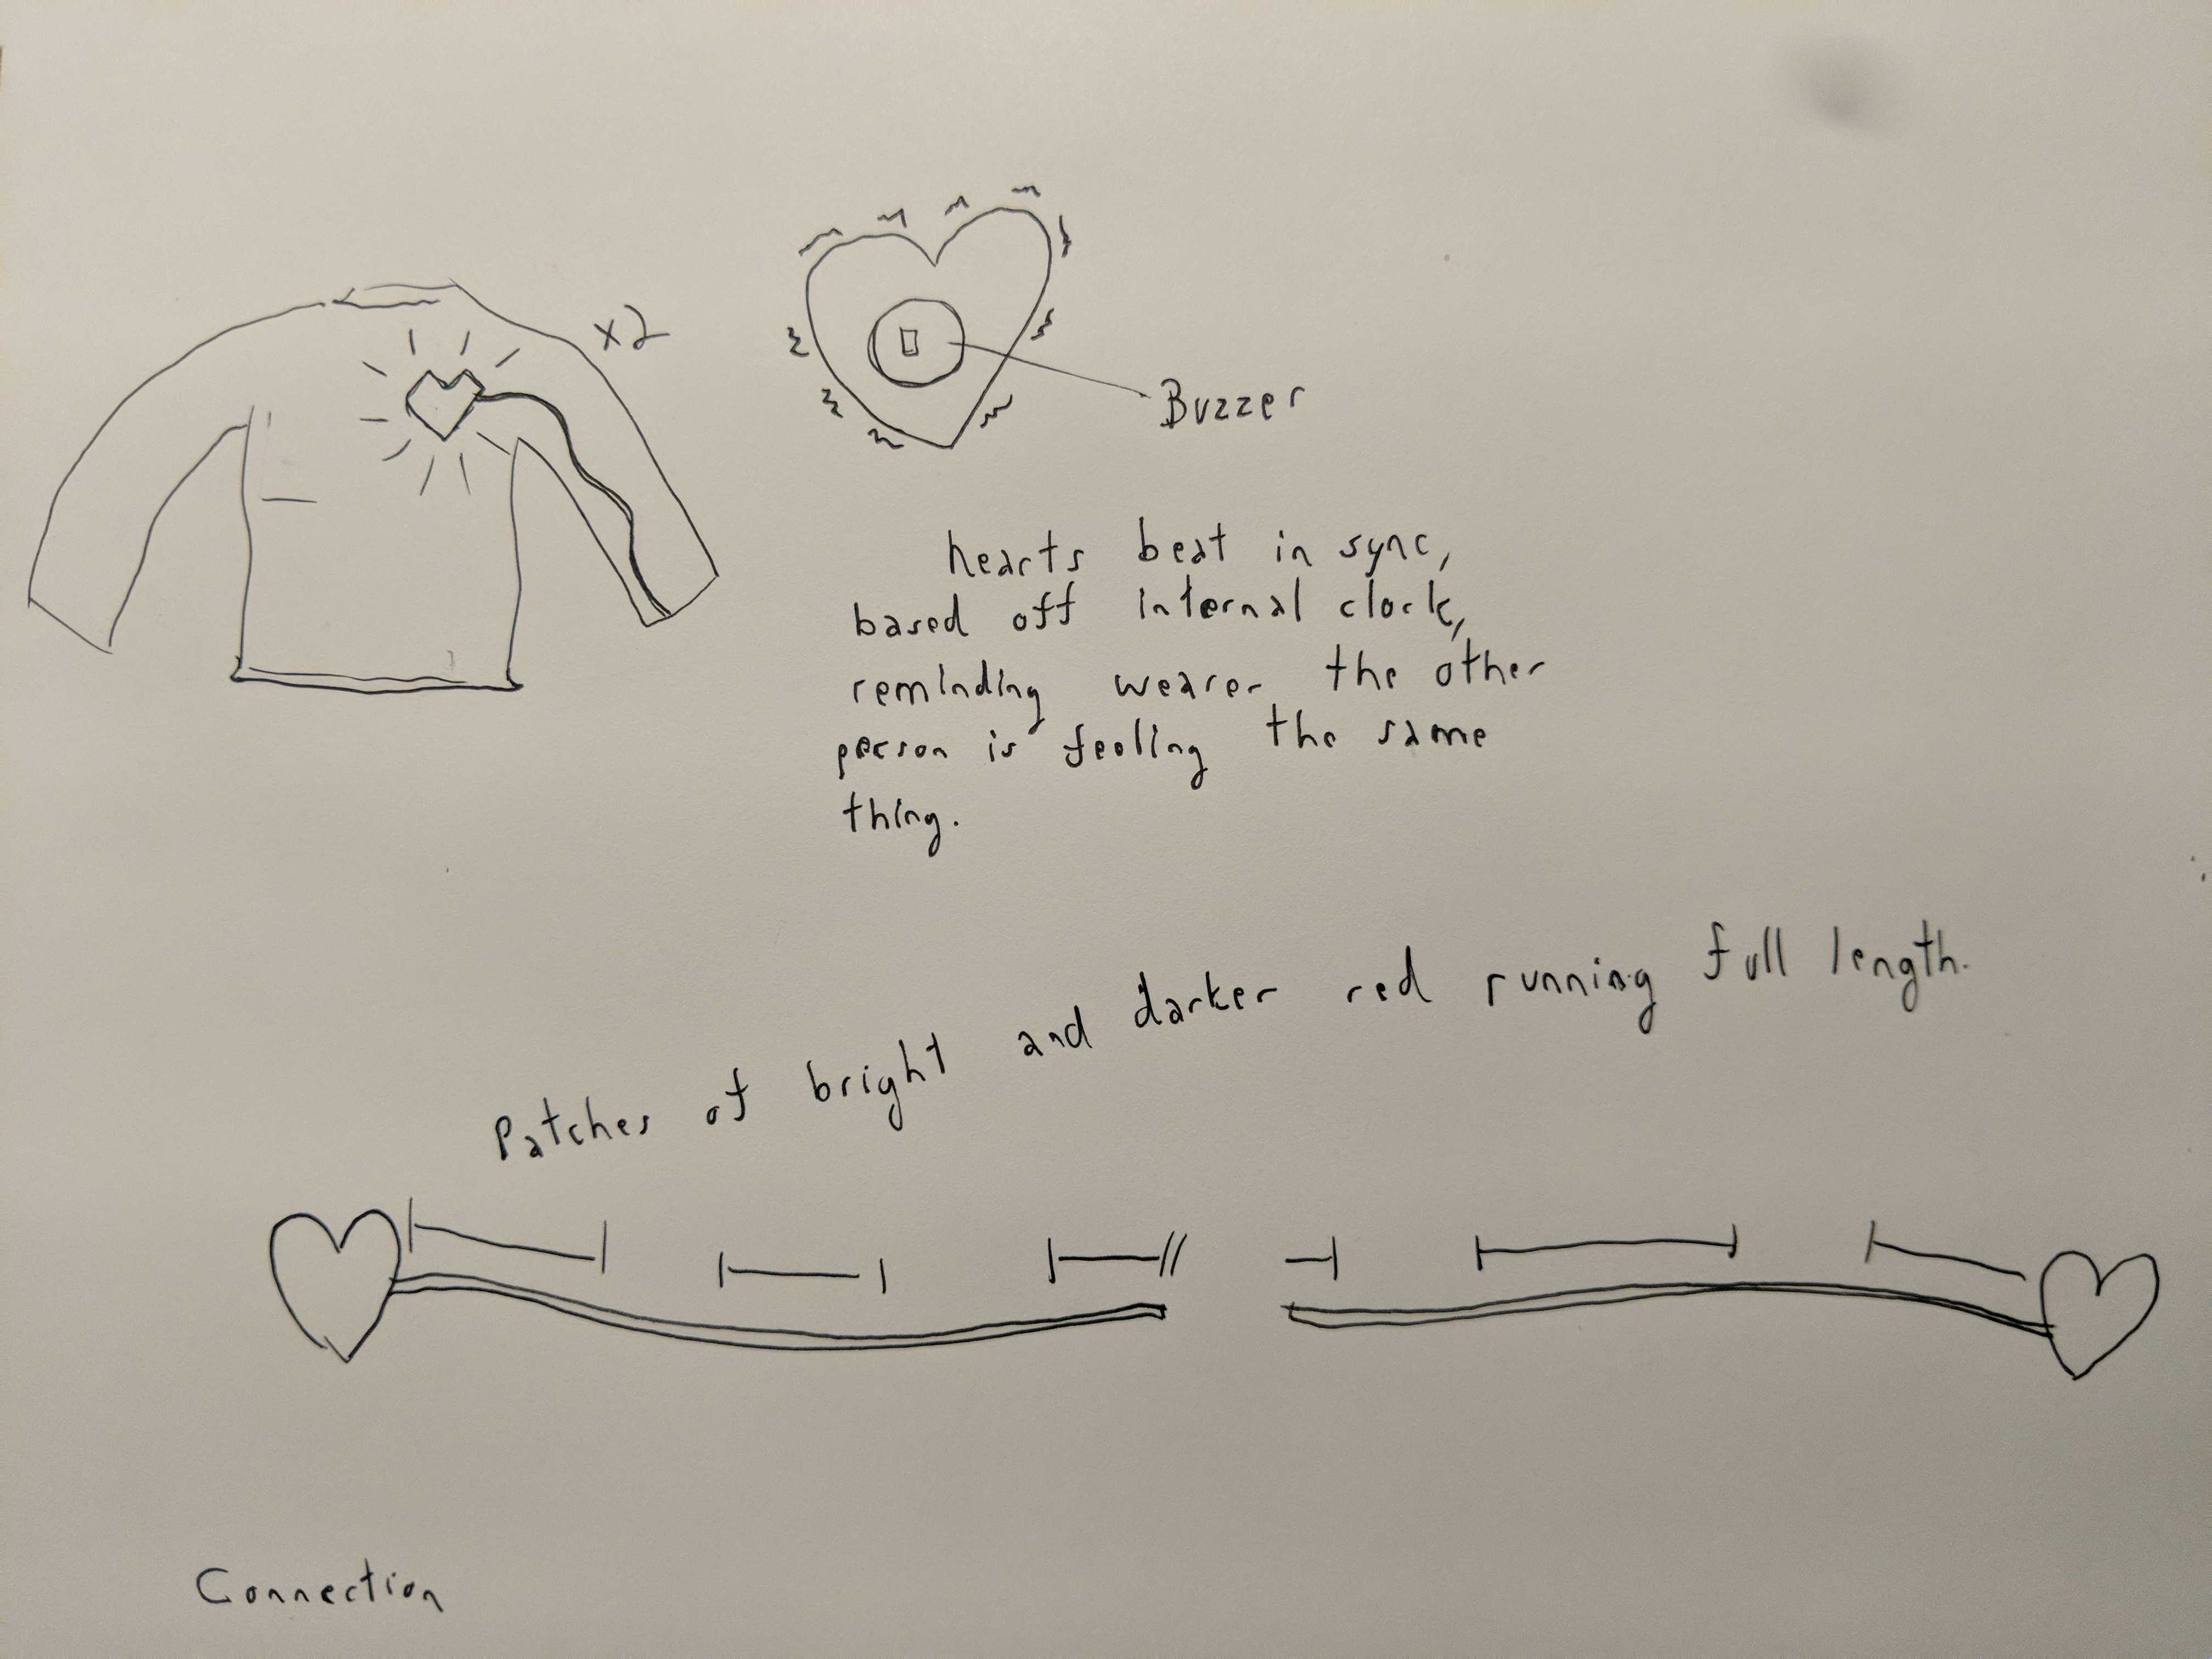 x2
Buzzer
hearts beat in sync,
based off internal clock,
reminding wearer the other
person is feeling the same
thing.
Patches of bright and darker red running full length.
Connection